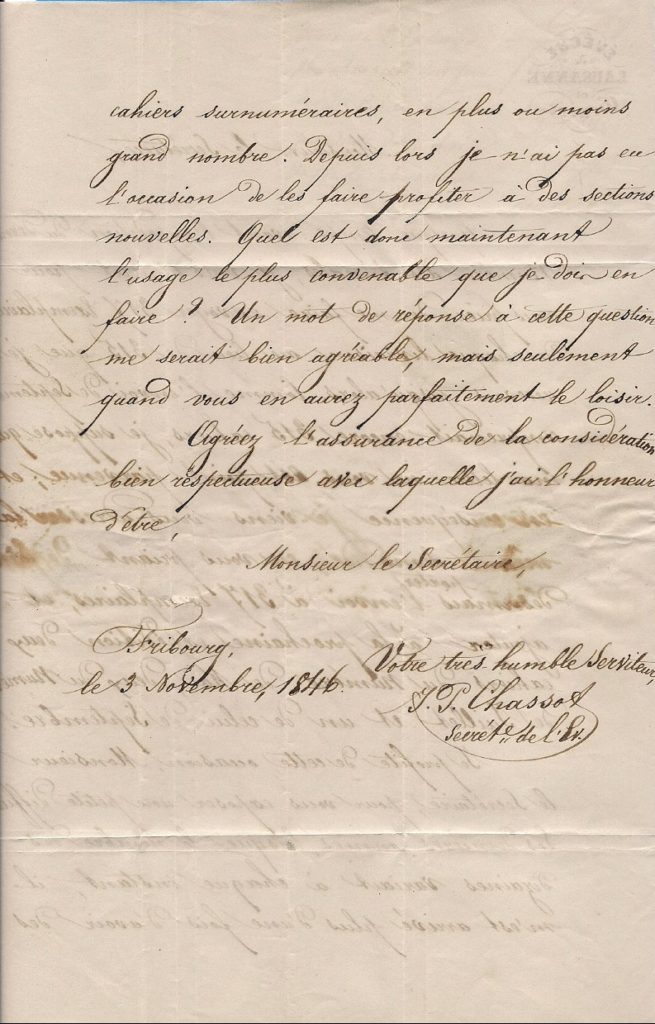 cahiers surnuméraires, en plus ou moins
grand nombre. Depuis lors je n'ai pas eu
l'occasion de les faire profiter à des sections
nouvelles. Quel est donc maintenant
l'usage le plus convenable que je dois en
faire? Un mot de réponse à cette question
me serait bien agréable, mais seulement
quand vous en aurez parfaitement le loisir.
Agréez l'assurance de la considération
bien respectueuse avec laquelle j'ai l'honneur
d'être,
Monsieur le Secrétaire,
Fribourg,
le 3 Novembre, 1846.
Votre très humble Serviteur,
J. P. Chassot
Secrét.re de l'Ev.